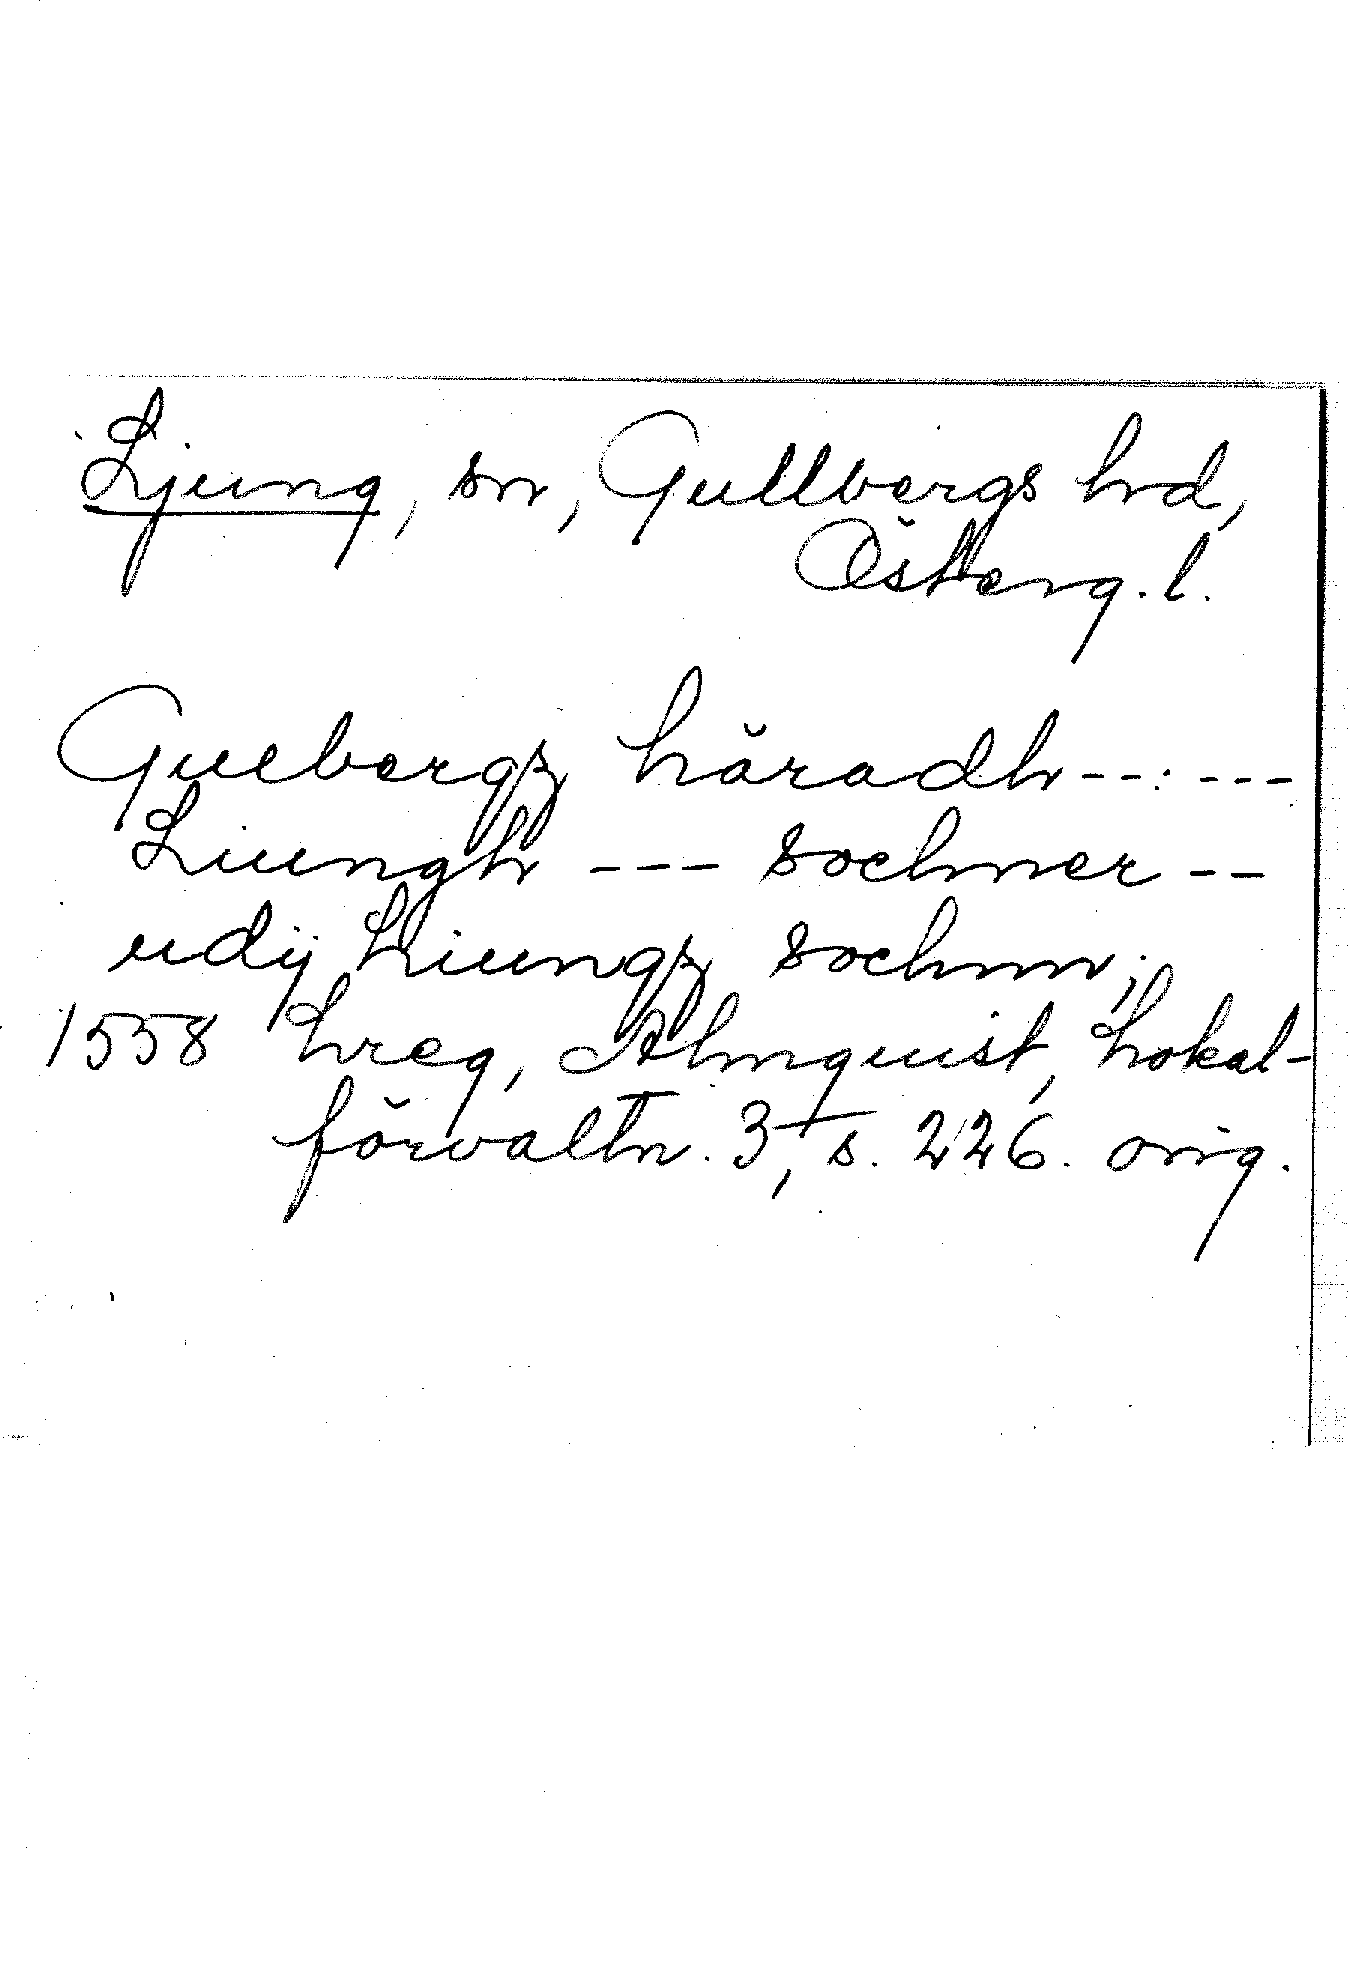 Ljung, sn, Gullbergs hd,
Österg.l.
Guebergz häradh-----
Liungh --- sochner--
udij Liungz sochnn;
1558 Lreg, Almquist, Lokal-
förvaltn. 3, s. 226. orig.